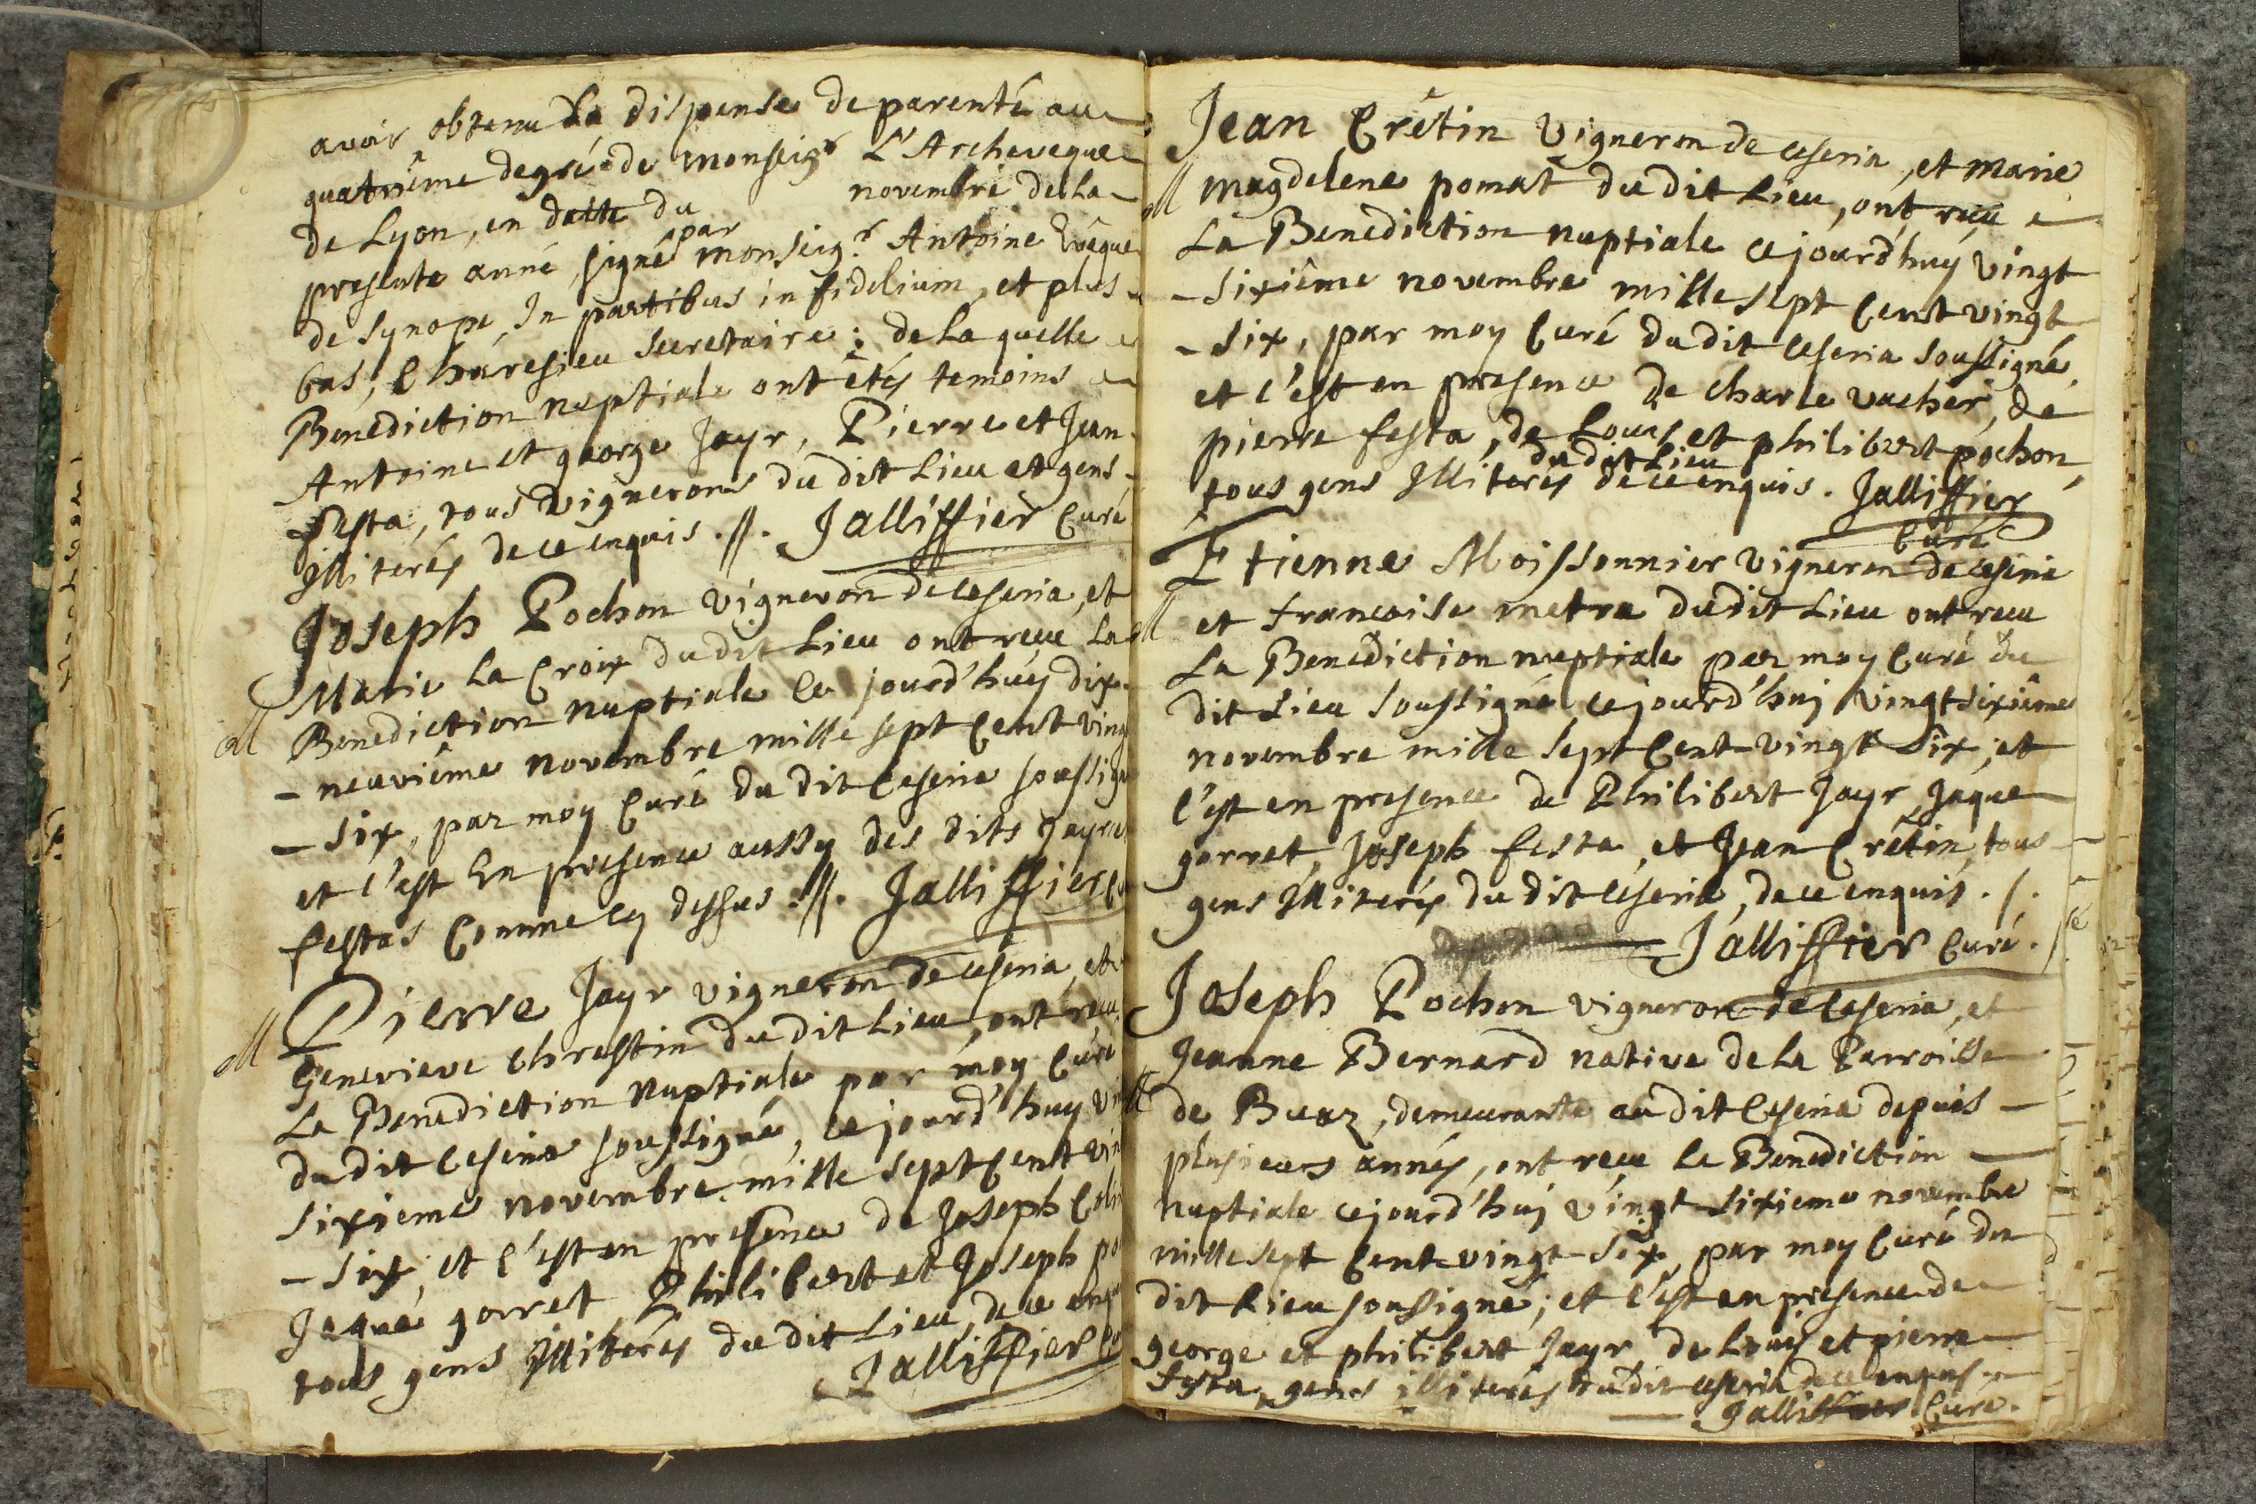 avoir obtenu La dispense de parenté au
quatriême degré de monseigr L'Archeveque
de Lyon, en datte du novembre de La
presente anné signé par monseigr. Antoine Evêque
de Synope In partibus in fidelium, et plus
bas, Charesieu secretaire : de La quelle
Benediction nuptiale ont êtés temoins
Antoine et george Jayr, Pierre et Jean
festa, tous vignerons du dit Lieu et gens
illiterés de ce enquis .//. Jalliffier Curé
Joseph Pochon vigneron de ceseria, et
Marie La Croix du dit Lieu ont reçu La
M Benediction nuptiale ce jourd'huy dix
- neuviême novembre mille sept Cent ving
- six, par moy Curé du dit Ceseria soussign
et c'est En presence aussy des dits Jayr
festas Comme cy dessus .//. Jalliffier
M Pierre Jayr vigneron de ceseria, et
Genevieve Chrestin du dit Lieu, ont reçu
La Benediction nuptiale par moy Curé
du dit ceseria soussigné, ce jourd'huy vin
sixieme novembre mille sept Cent vin
- six, et c'est en presence de Joseph
Jaque gorret, Philibert et Joseph po
tous gens illiterés du dit Lieu, de ce enqu
Jalliffier
Jean Crêtin vigneron de ceseria, et marie
M magdelene pomat du dit Lieu, ont reçu
La Benediction nuptiale ce jourd'huy vingt
- sixiême novembre mille sept Cent vingt
- six, par moy Curé du dit ceseria soussigné,
et c'est en presence de charle vacher, de
pierre festa, de Louis et philibert pochon,
tous gens illiterés du dit Lieu de ce enquis. Jalliffier
Curé
Etienne Moissonnier vigneron de ceseria
M et francoise metra du dit Lieu ont reçu
La Benediction nuptiale par moy Curé du
dit Lieu soussigné, ce jourd'huy vingt sixiême
novembre mille sept Cent vingt six, et
c'est en presence de Philibert Jayr, Jaque
gorret, Joseph festa, et Jean Crêtin, tous
gens illiterés du dit ceseria, de ce enquis ./.
Jalliffier Curé.
Joseph Pochon vigneron de Ceseria, et
Jeanne Bernard native de La Parroisse
M de Buar, demeurante au dit Ceseria depuis
plusieurs annés, ont reçu La Benediction
nuptiale ce jourd'huy vingt-sixieme novembre
mille sept Cent vingt-six, par moy Curé du
dit Lieu soussigné; et c'est en presence de
george et philibert Jayr de Louis et pierre
festa, gens illiterés du dit ceseria de ce enquis
Jalliffier Curé.